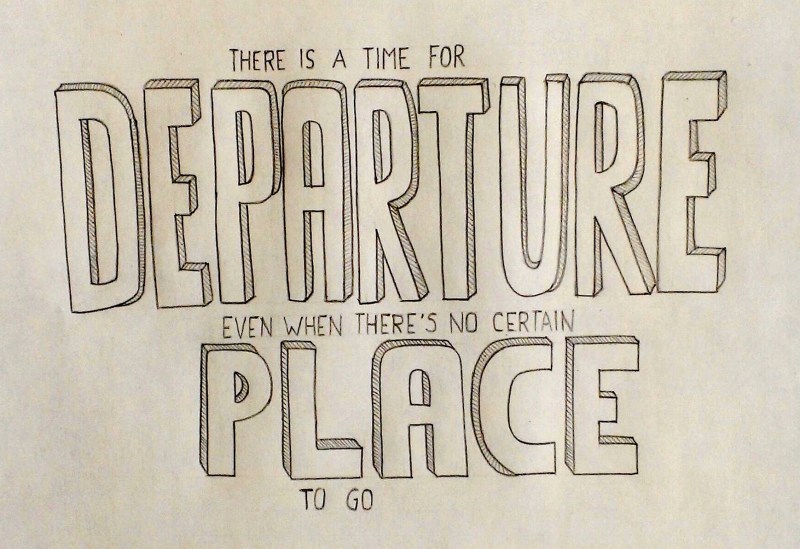 THERE IS A TIME FOR
DEPARTURE
EVEN WHEN THERE'S NO CERTAIN
PLACE
TO GO